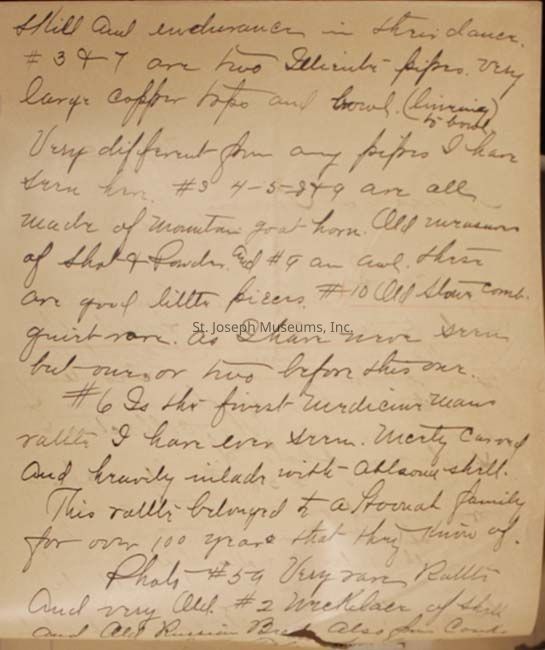 skill and endurance in their dance.
#3 & 7 are two Tlienkit pipes. Very
large copper tops and bowl. (linning
to bowl)
Very different from any pipes I have
seen here. #3 4-5-8&9 are all
made of mountain goat horn. Old measures
of shot & Powder. And #9 an awl. These
are good little pieces. #10 Old Stone comb.
quiet rare. as I have never seen
but one or two before this one.
#6 Is the finest medicine mans
rattle I have ever seen. Nicely Carved
and heavily inlade with abalone shell.
This rattle belonged to a Hoonah family
for over 100 years that they know of.
Photo #59 Very rare Rattle
And very Old. #2 Necklace of shell
and Old Russian Beads Also
St. Joseph Museums, Inc.